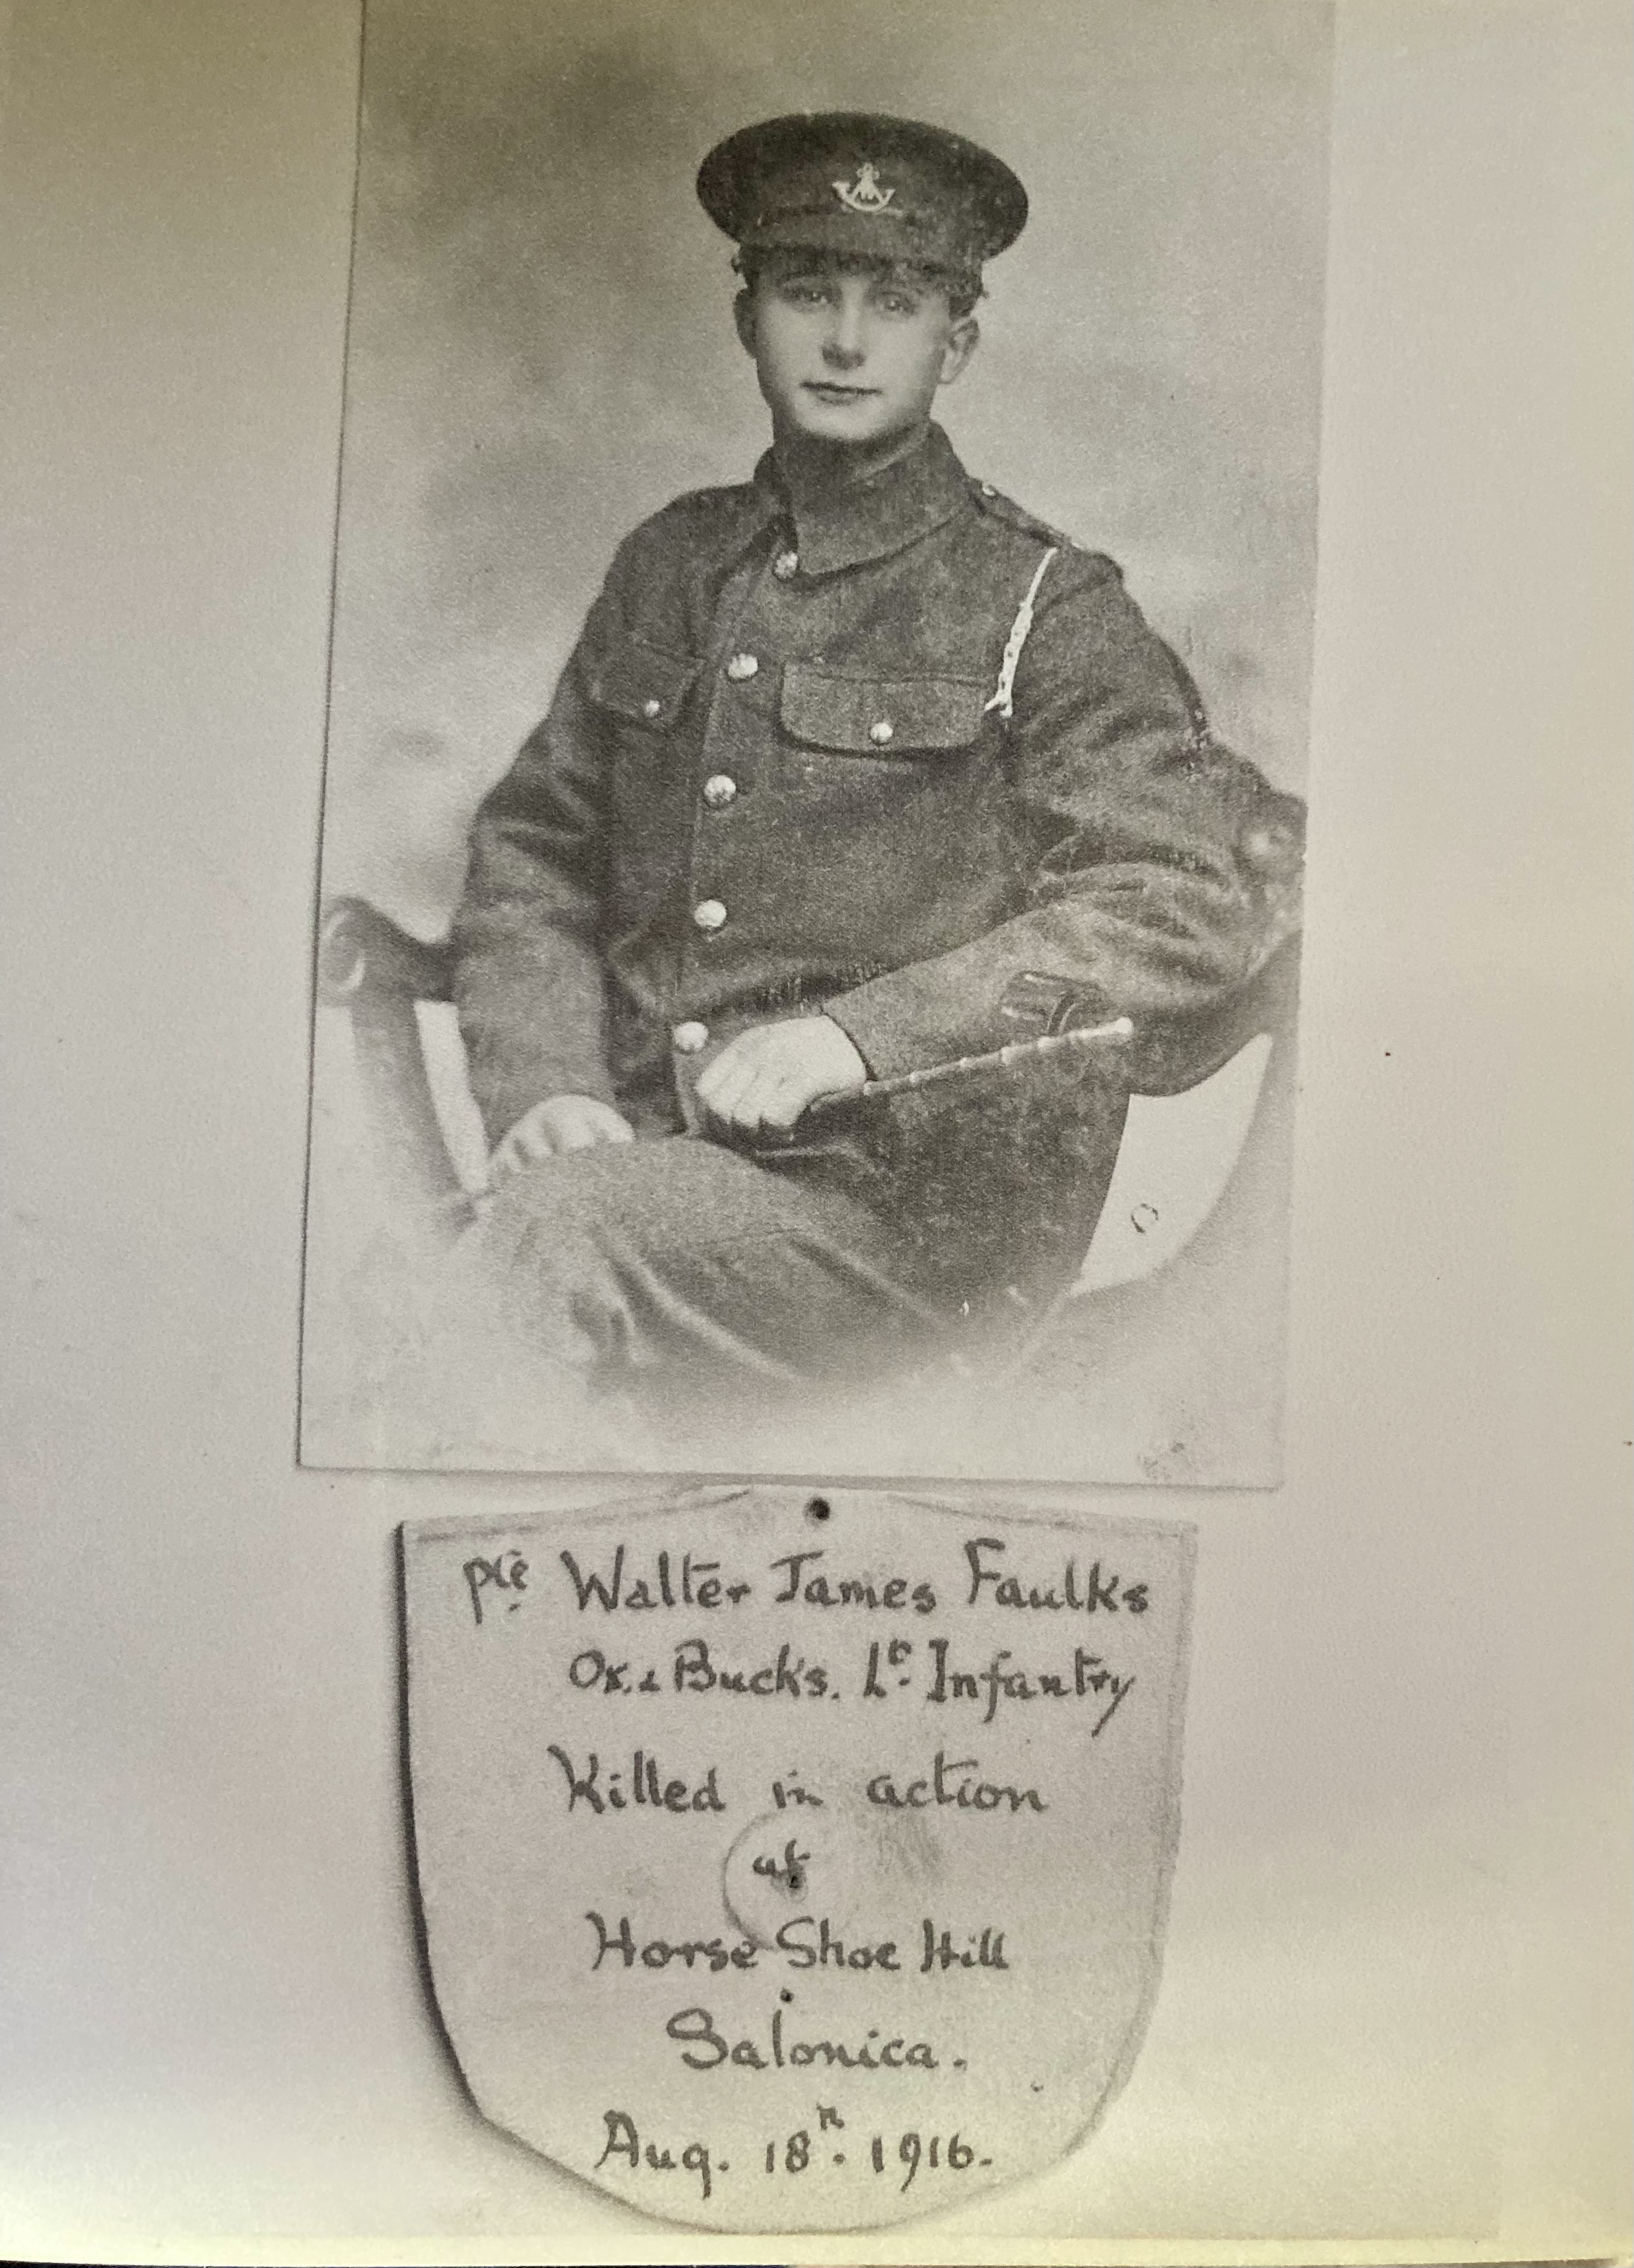 pte. Walter James Faulks
Ox. & Bucks. Lt. Infantry
Killed in action
at
Horse Shoe Hill
Salonica.
Aug. 18th. 1916.